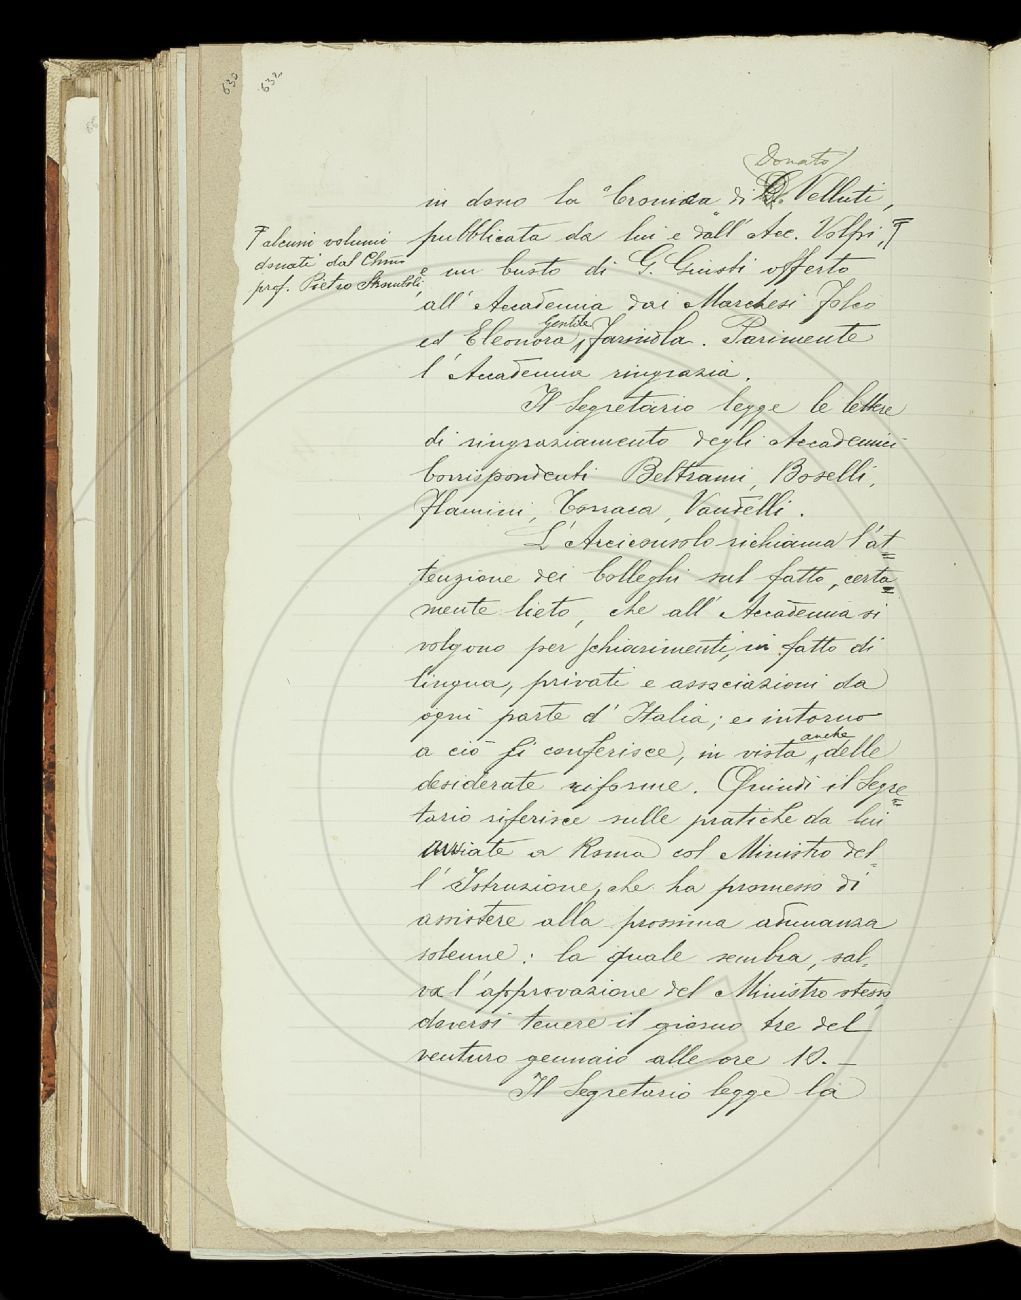 630 632
(Donato)
in dono la "Cronica" di D. Velluti,
pubblicata da lui e dall' Acc. Volpi,
e un busto di G. Giusti offerto
all' Accademia dai Marchesi Folco
ed Eleonora Gentile Farinola. Parimente
l' Accademia ringrazia.
alcuni volumi
donati dal Chmo
prof. Pietro
Il Segretario legge le lettere
di ringraziamento degli Accademici
Corrispondenti Beltrami, Boselli,
Flamini, Torraca, Vandelli.
L' Arciconsolo richiama l'at=
tenzione dei Colleghi sul fatto, certa=
mente lieto, che all' Accademia si
volgono per schiarimenti, in fatto di
lingua, privati e associazioni da
ogni parte d' Italia; e intorno
a ciò si conferisce, in vista anche delle
desiderate riforme. Quindi il Segre=
tario riferisce sulle pratiche da lui
avviate a Roma col Ministro del=
l' Istruzione, che ha promesso di
assistere alla prossima adunanza
solenne: la quale sembra, sal=
va l' approvazione del Ministro stesso,
doversi tenere il giorno tre del
venturo gennaio alle ore 10. –
Il Segretario legge la